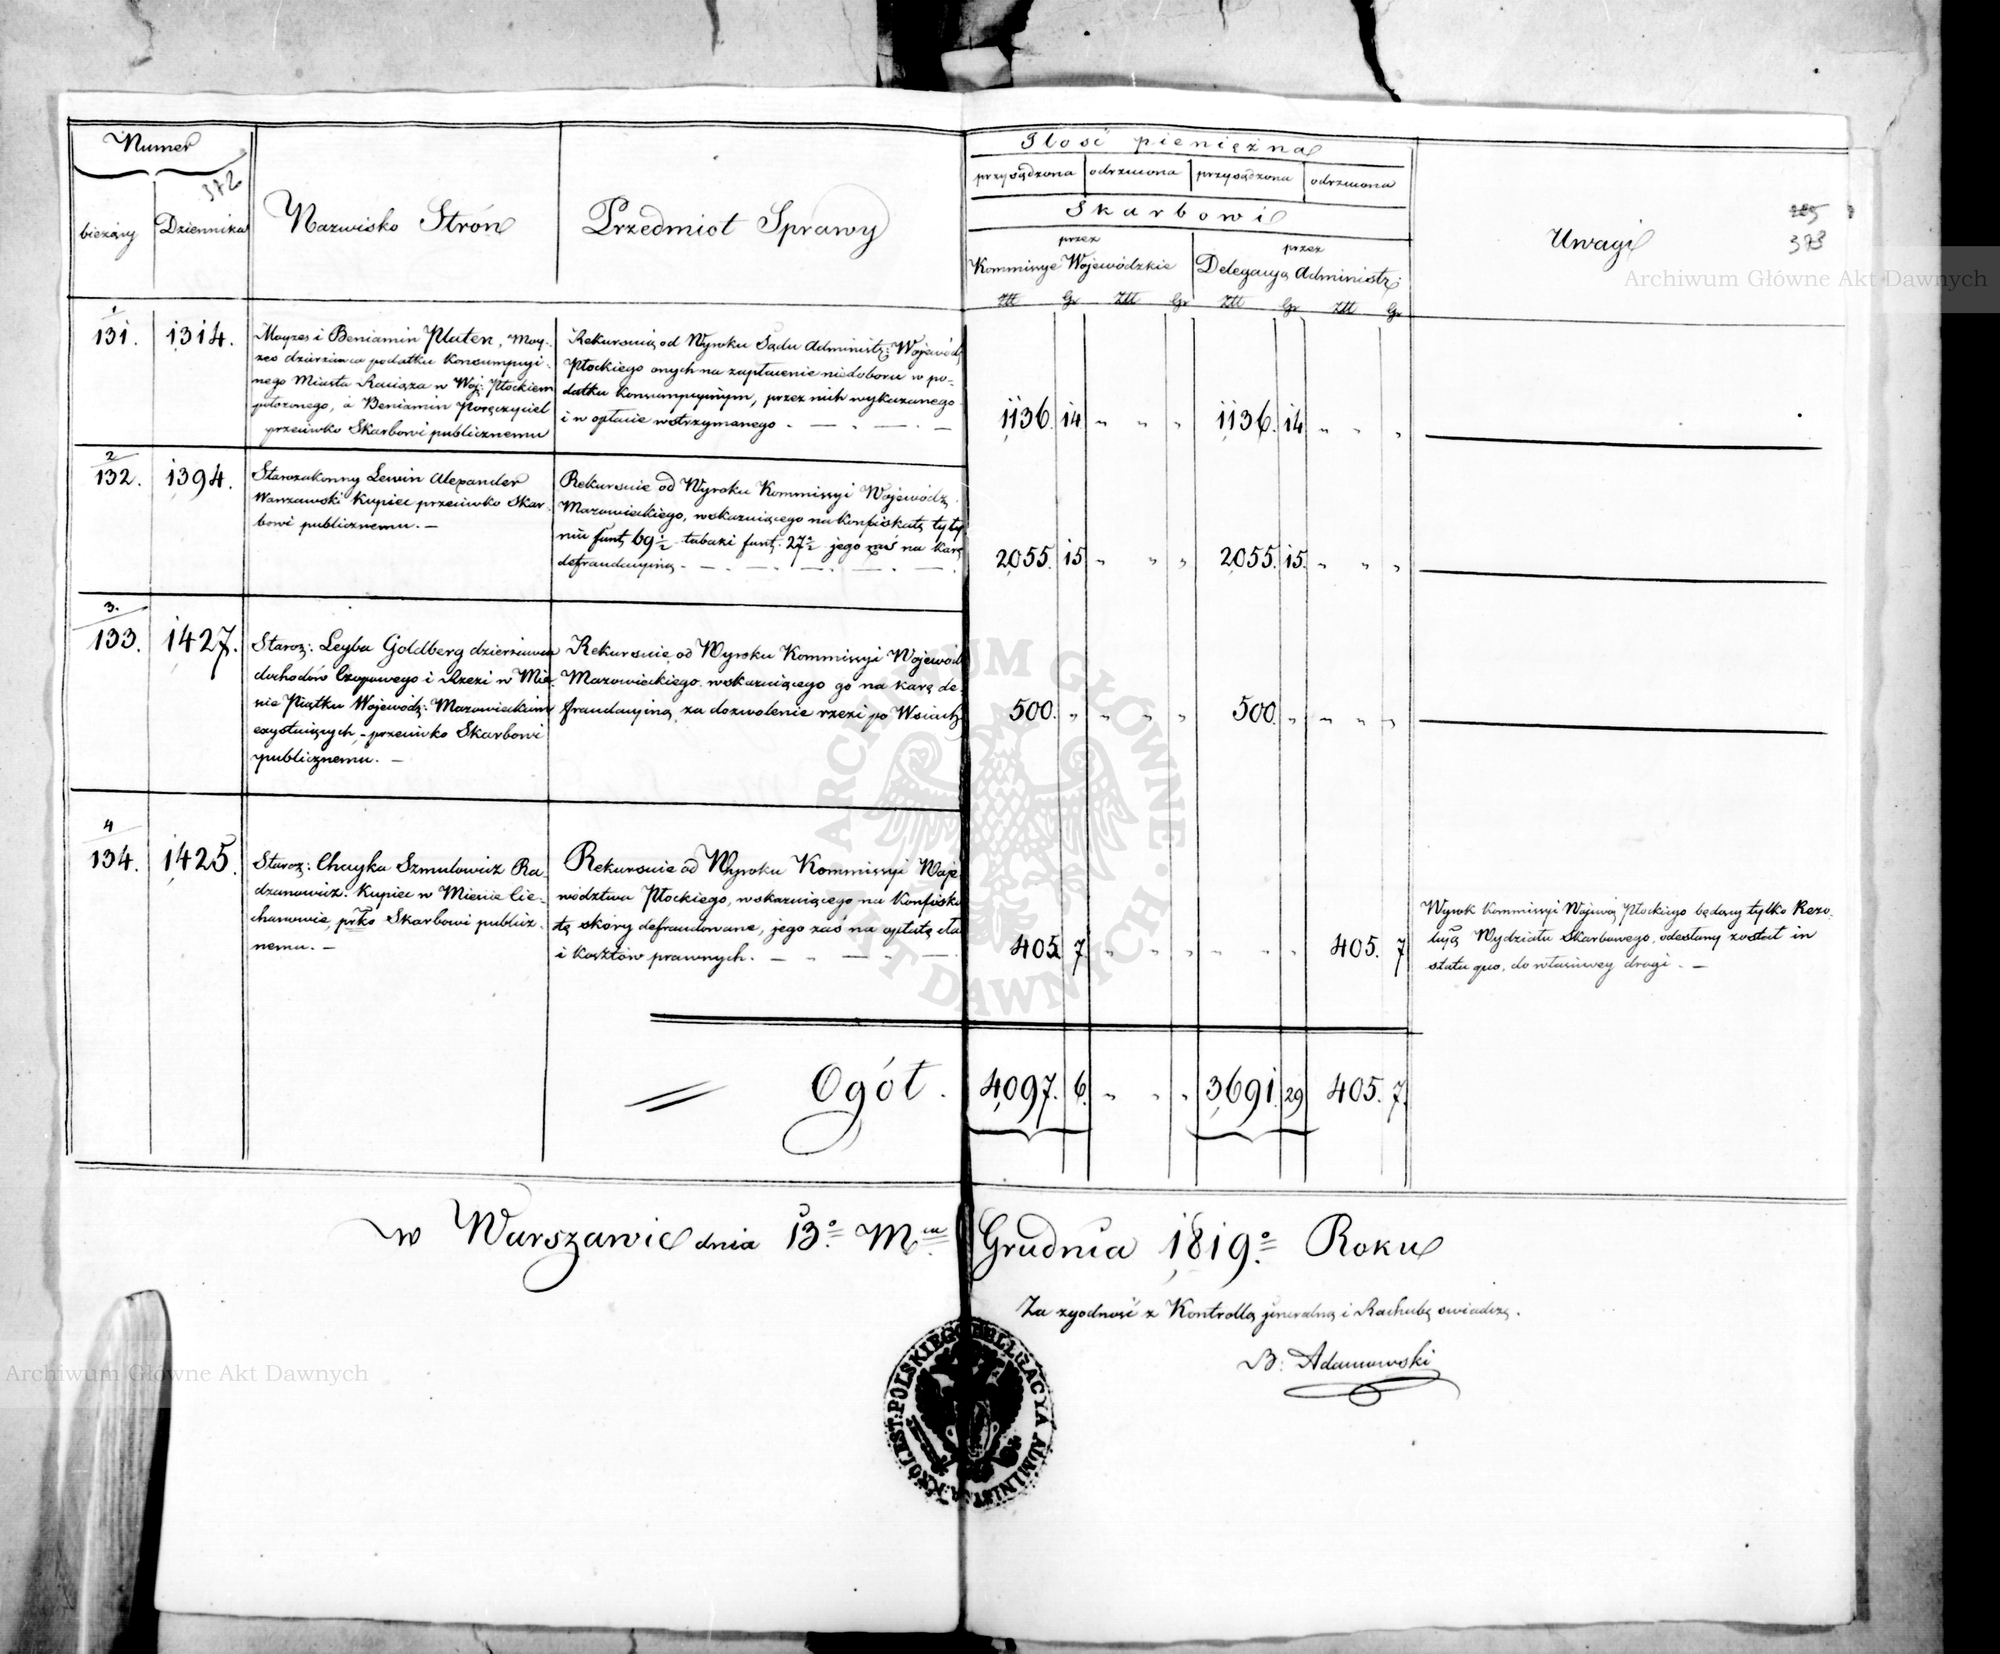 Numer
372
bieżący
Dziennika
Nazwisko Strón
Przedmiot Sprawy
Ilość pieniężna
przysądzona odrzucona przysądzona odrzucona
Skarbowi
przez Kommissye Wojewódzkie
przez Delegacyą Administr:
Złł Gr Złł Gr Złł Gr Złł Gr
Uwagi
373
Archiwum Główne Akt Dawnych
1
131. 1314.
Moyzes i Beniamin Pluten, Moy-
zes dzierżawca podatku Konsumpcyi-
nego Miasta Raciąża w Woj: Płockiem
położonego, a Beniamin Poręczyciel
przeciwko Skarbowi publicznemu
Rekursuią od Wyroku Sądu Administr: Wojewódz
Płockiego onych na zapłacenie niedoboru w po-
datku Konsumpcyinym, przez nich wykazanego
i w opłacie wstrzymanego
1136. 14 1136. 14
2
132. 1394.
Starozakonny Lewin Alexander
Warszawski Kupiec przeciwko Skar-
bowi publicznemu. —
Rekursuie od Wyroku Kommissyi Wojewódz
Mazowieckiego, wskazuiącego na Konfiskatę tyty
niu funt. 69½ tabaki funt. 27½ jego zaś na karę
defraudacyiną —
2055. 15 2055. 15.
3.
133. 1427.
Staroz: Leyba Goldberg dzierżawca
dochodów Czopowego i Rzezi w Mie-
ście Piątku Wojewódz: Mazowieckim
exystuiących, — przeciwko Skarbowi
publicznemu. —
Rekursuie od Wyroku Kommissyi Wojewódz
Mazowieckiego wskazuiącego go na karę de-
fraudacyiną za dozwolenie rzezi po Wsiach
500. 500.
4
134. 1425.
Staroz: Chayka Szmulowicz Ra-
dzanowicz. Kupiec w Mieście Cie-
chanowie, prko Skarbowi publicz-
nemu. —
Rekursuie od Wyroku Kommissyi Woje
wództwa Płockiego, wskazuiącego na Konfiska
tę skóry defraudowane, jego zaś na opłatę cła
i Kosztów prawnych. —
405. 7 405. 7
Wyrok Kommissyi Wojewó Płockiego będący tylko Rezo-
lucyą Wydziału Skarbowego, odesłany został in
statu quo, do właściwey drogi. —
Ogół. 4097. 6. 3691. 29 405. 7.
w Warszawie dnia 13º Mca Grudnia 1819º Roku
Za zgodność z Kontrollą jeneralną i Rachubą świadczę.
B: Adamowski
KRÓLEST: POLSKIEGO DELEGACYA ADMINISTR:
ARCHIWUM GŁÓWNE AKT DAWNYCH
Archiwum Główne Akt Dawnych